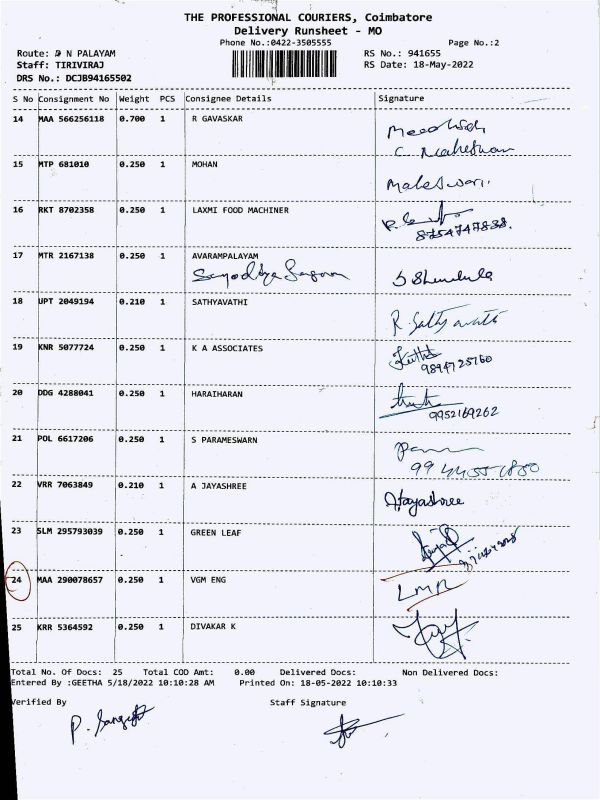 THE PROFESSIONAL COURIERS, Coimbatore
Delivery Runsheet - MO
Phone No.:0422-3505555
Page No.:2
Route: P N PALAYAM
RS No.: 941655
Staff: TIRIVIRAJ
RS Date: 18-May-2022
DRS No.: DCJB94165502
S No Consignment No Weight PCS Consignee Details Signature
14 MAA 566256118 0.700 1 R GAVASKAR
C. Maheshwari
15 MTP 681010 0.250 1 MOHAN Maleswari.
16 RKT 8702358 0.250 1 LAXMI FOOD MACHINER
8754747838.
17 MTR 2167138 0.250 1 AVARAMPALAYAM
18 UPT 2049194 0.210 1 SATHYAVATHI R. Sathyavathi
19 KNR 5077724 0.250 1 K A ASSOCIATES
9894725760
20 DDG 4288041 0.250 1 HARAIHARAN
9952169262
21 POL 6617206 0.250 1 S PARAMESWARN
22 VRR 7063849 0.210 1 A JAYASHREE AJayashree
23 SLM 295793039 0.250 1 GREEN LEAF
24 MAA 290078657 0.250 1 VGM ENG LMR
25 KRR 5364592 0.250 1 DIVAKAR K
Total No. Of Docs: 25 Total COD Amt: 0.00 Delivered Docs: Non Delivered Docs:
Entered By :GEETHA 5/18/2022 10:10:28 AM Printed On: 18-05-2022 10:10:33
Verified By Staff Signature